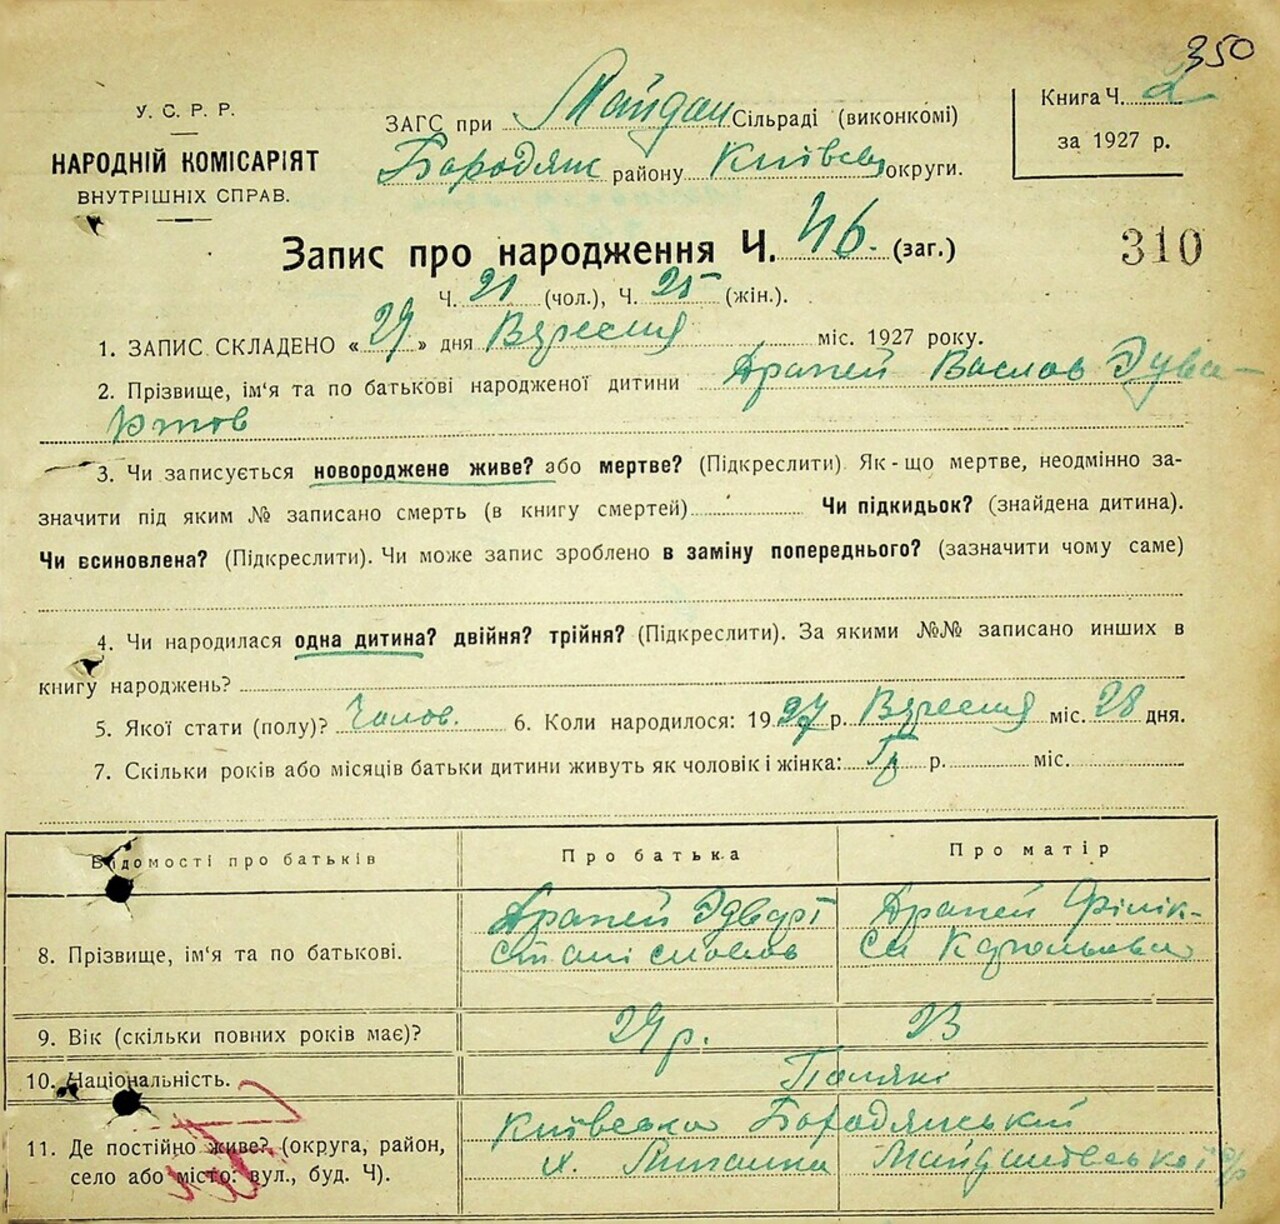 350
У. С. Р. Р.
НАРОДНІЙ КОМІСАРІЯТ
ВНУТРІШНІХ СПРАВ.
ЗАГС при Майдан Сільраді (виконкомі)
Бородян району Київськ округи.
Книга Ч. 2
за 1927 р.
Запис про народження Ч. 46. (заг.)
310
Ч. 21 (чол.), Ч. 25 (жін.).
1. ЗАПИС СКЛАДЕНО « 29 » дня Вересня міс. 1927 року.
2. Прізвище, ім'я та по батькові народженої дитини Драпей Васлов Эдуа-
ртов
3. Чи записується новороджене живе? або мертве? (Підкреслити). Як-що мертве, неодмінно за-
значити під яким № записано смерть (в книгу смертей) Чи підкидьок? (знайдена дитина).
Чи всиновлена? (Підкреслити). Чи може запис зроблено в заміну попереднього? (зазначити чому саме)
4. Чи народилася одна дитина? двійня? трійня? (Підкреслити). За якими №№ записано инших в
книгу народжень?
5. Якої стати (полу)? Чолов. 6. Коли народилося: 1927 р. Вересня міс. 28 дня.
7. Скільки років або місяців батьки дитини живуть як чоловік і жінка: р. міс.
Відомості про батьків
Про батька
Про матір
8. Прізвище, ім'я та по батькові.
Драпей Эдварт
Станіславов
Драпей Філік-
са Карольовна
9. Вік (скільки повних років має)?
29 р.
23
10. Національність.
Поляки
11. Де постійно живе? (округа, район,
село або місто: вул., буд. Ч).
Київська Бородянський
х. Майданівської с/р